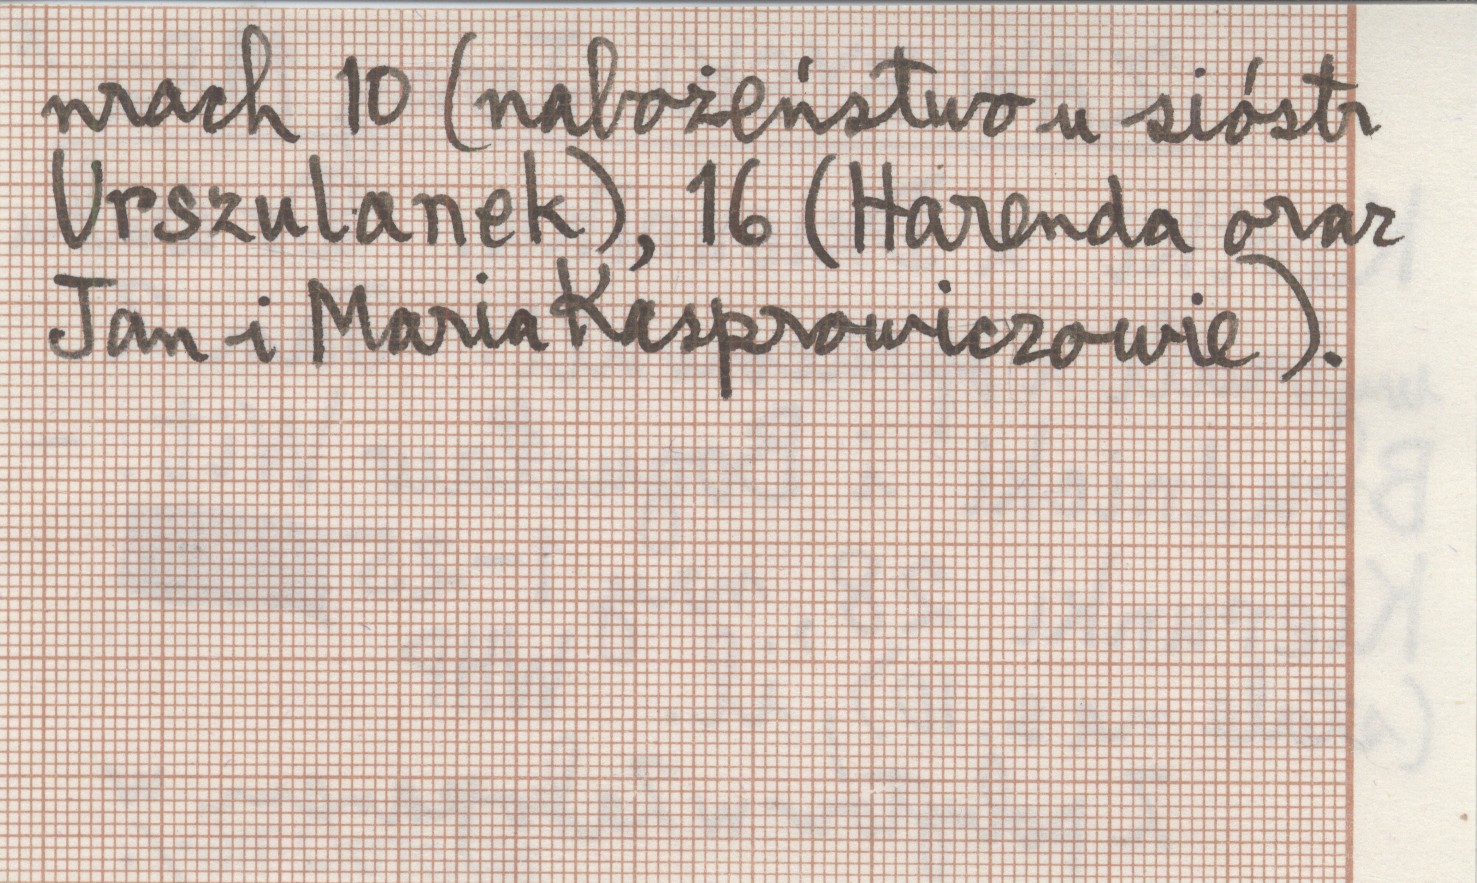 nrach 10 (nabożeństwo u sióstr
Urszulanek), 16 (Harenda oraz
Jan i Maria Kasprowiczowie).